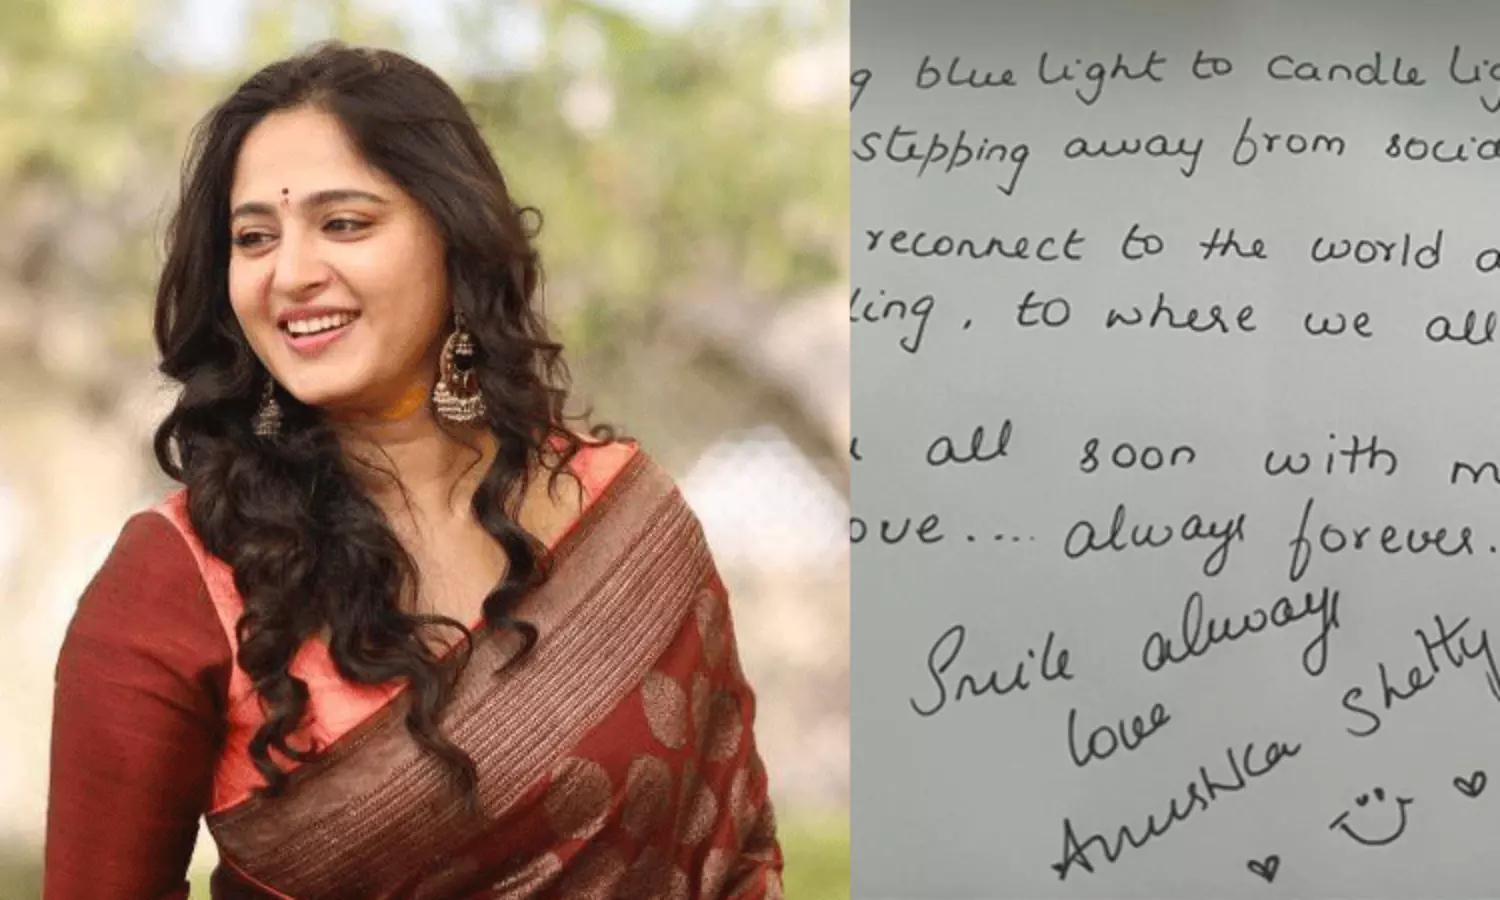 g blue light to candle lig
stepping away from socia
reconnect to the world a
ling, to where we all
all soon with m
ove.... always forever.
Smile always
love
Anushka Shetty